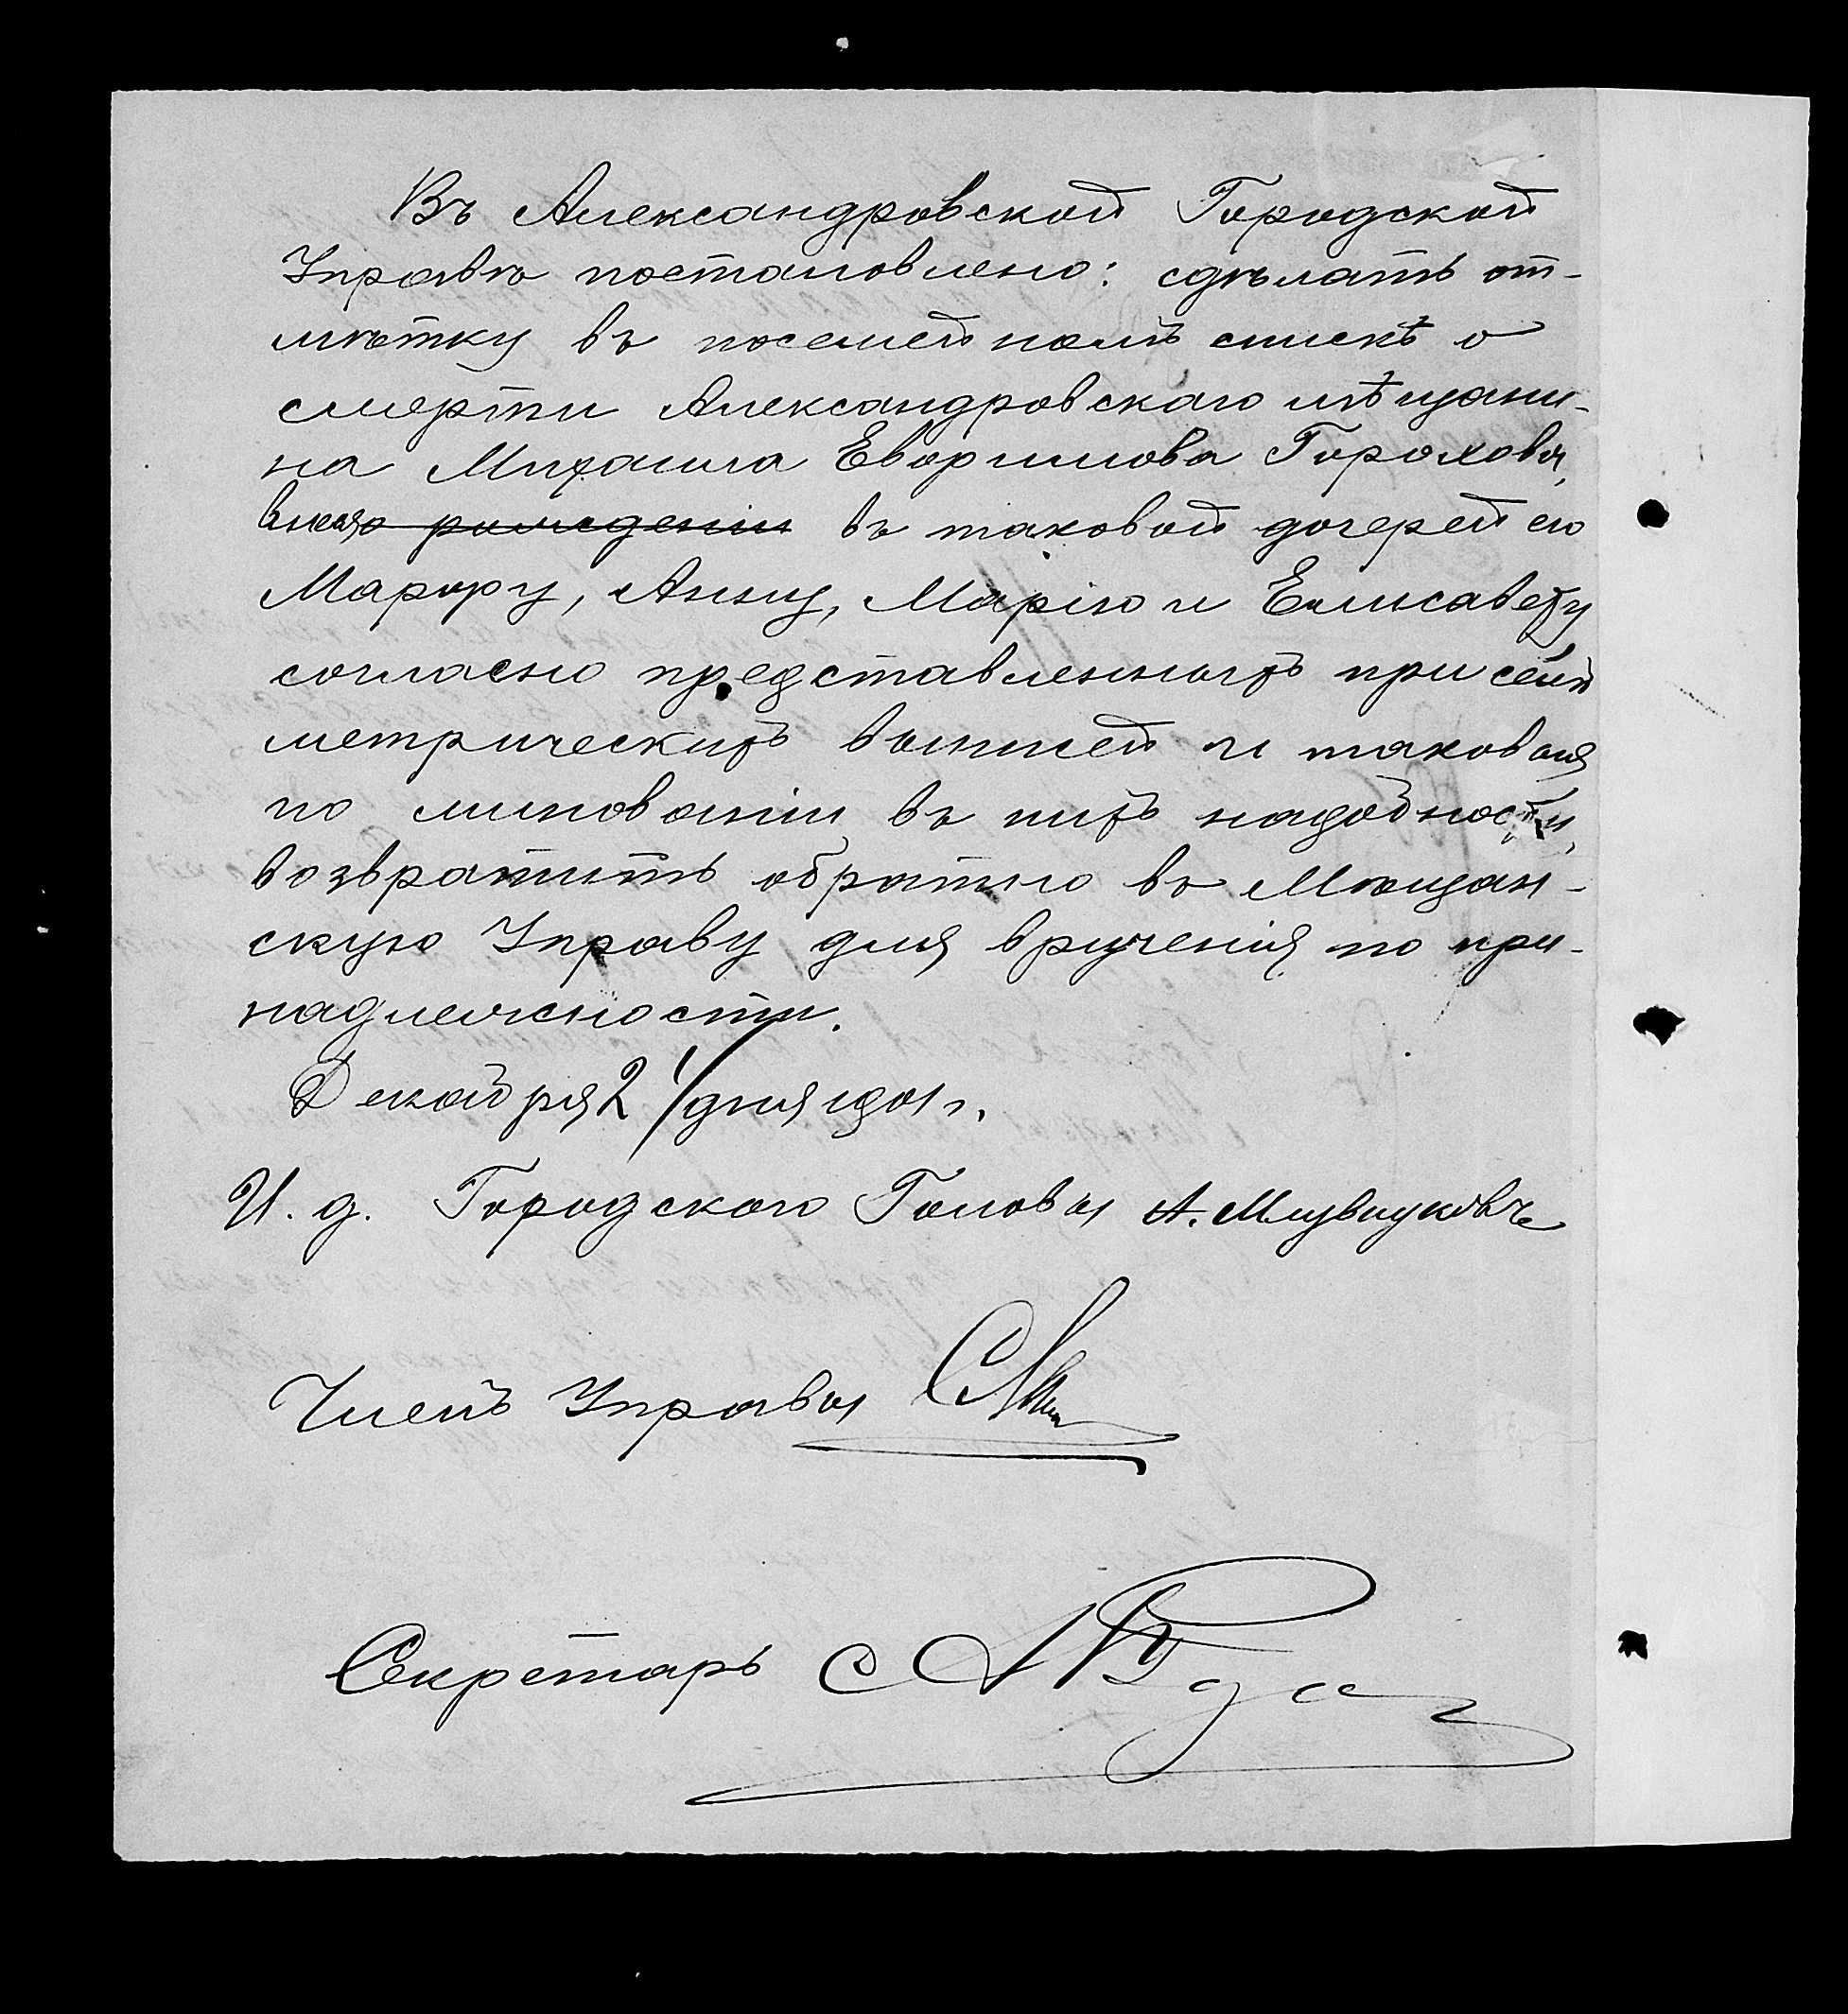 Въ Александровской Городской
Управѣ постановлено: сдѣлать от-
мѣтку въ посемейномъ спискѣ о
смерти Александровскаго мѣщани-
на Михаила Евфимова Горохова,
внеся рождении въ таковой дочерей его
Марфу, Анну, Марію и Елисавету
согласно представленныхъ при семъ
метрическихъ выписей и таковыя
по минованіи въ нихъ надобности,
возвратить обратно въ Мѣщан-
скую Управу для врученія по при-
надлежности.
Декабря 21 дня 1901 г.
И. д. Городского Головы А.
Членъ Управы
Секретарь